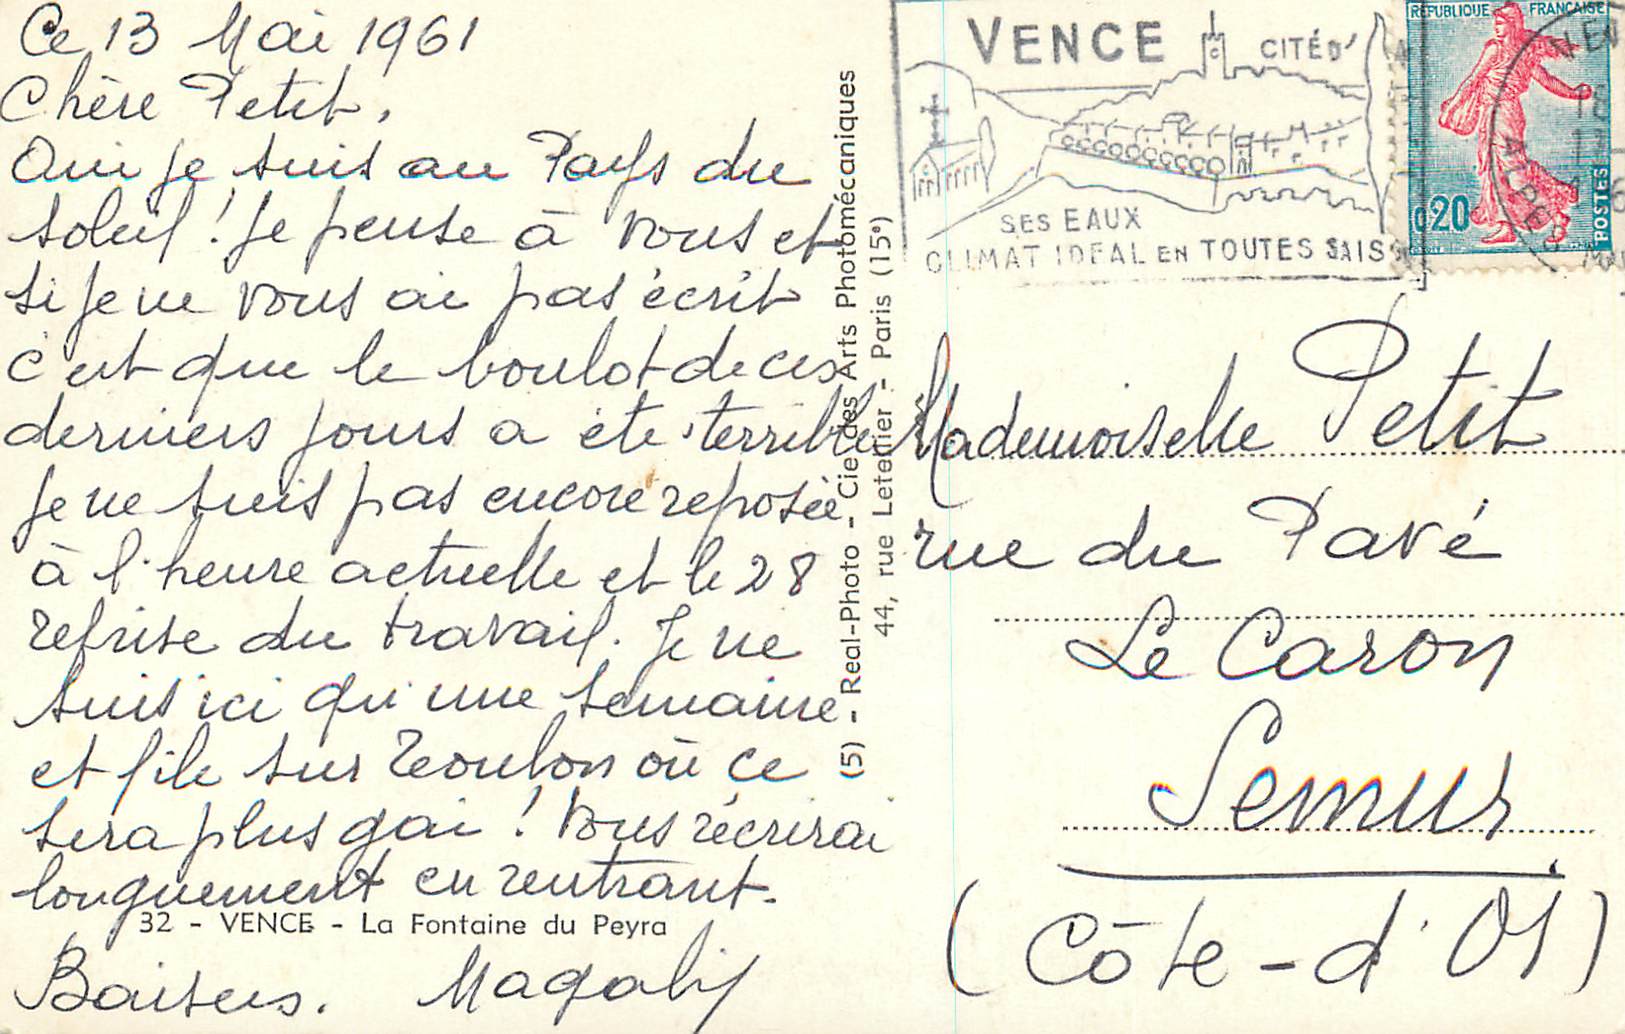 Ce 13 Mai 1961
Chère Petit,
Oui je suis au Pays du
soleil ! Je pense à vous et
si je ne vous ai pas écrit
c'est que le boulot de ces
derniers jours a été terrible
je ne suis pas encore reposée
à l'heure actuelle et le 28
reprise du travail. Je ne
suis ici qu'une semaine
et file sur Toulon où ce
sera plus gai ! Vous récrirai
longuement en rentrant.
32 - VENCE - La Fontaine du Peyra
Baisers. Magaly
(5) - Real-Photo - Cie des Arts Photomécaniques
44, rue Letellier - Paris (15e)
VENCE CITÉ D'
SES EAUX
CLIMAT IDEAL EN TOUTES SAIS
REPUBLIQUE FRANÇAISE
0,20
POSTES
VEN
ALPES
Mademoiselle Petit
rue du Pavé
Le Caron
Semur
(Côte-d'Or)